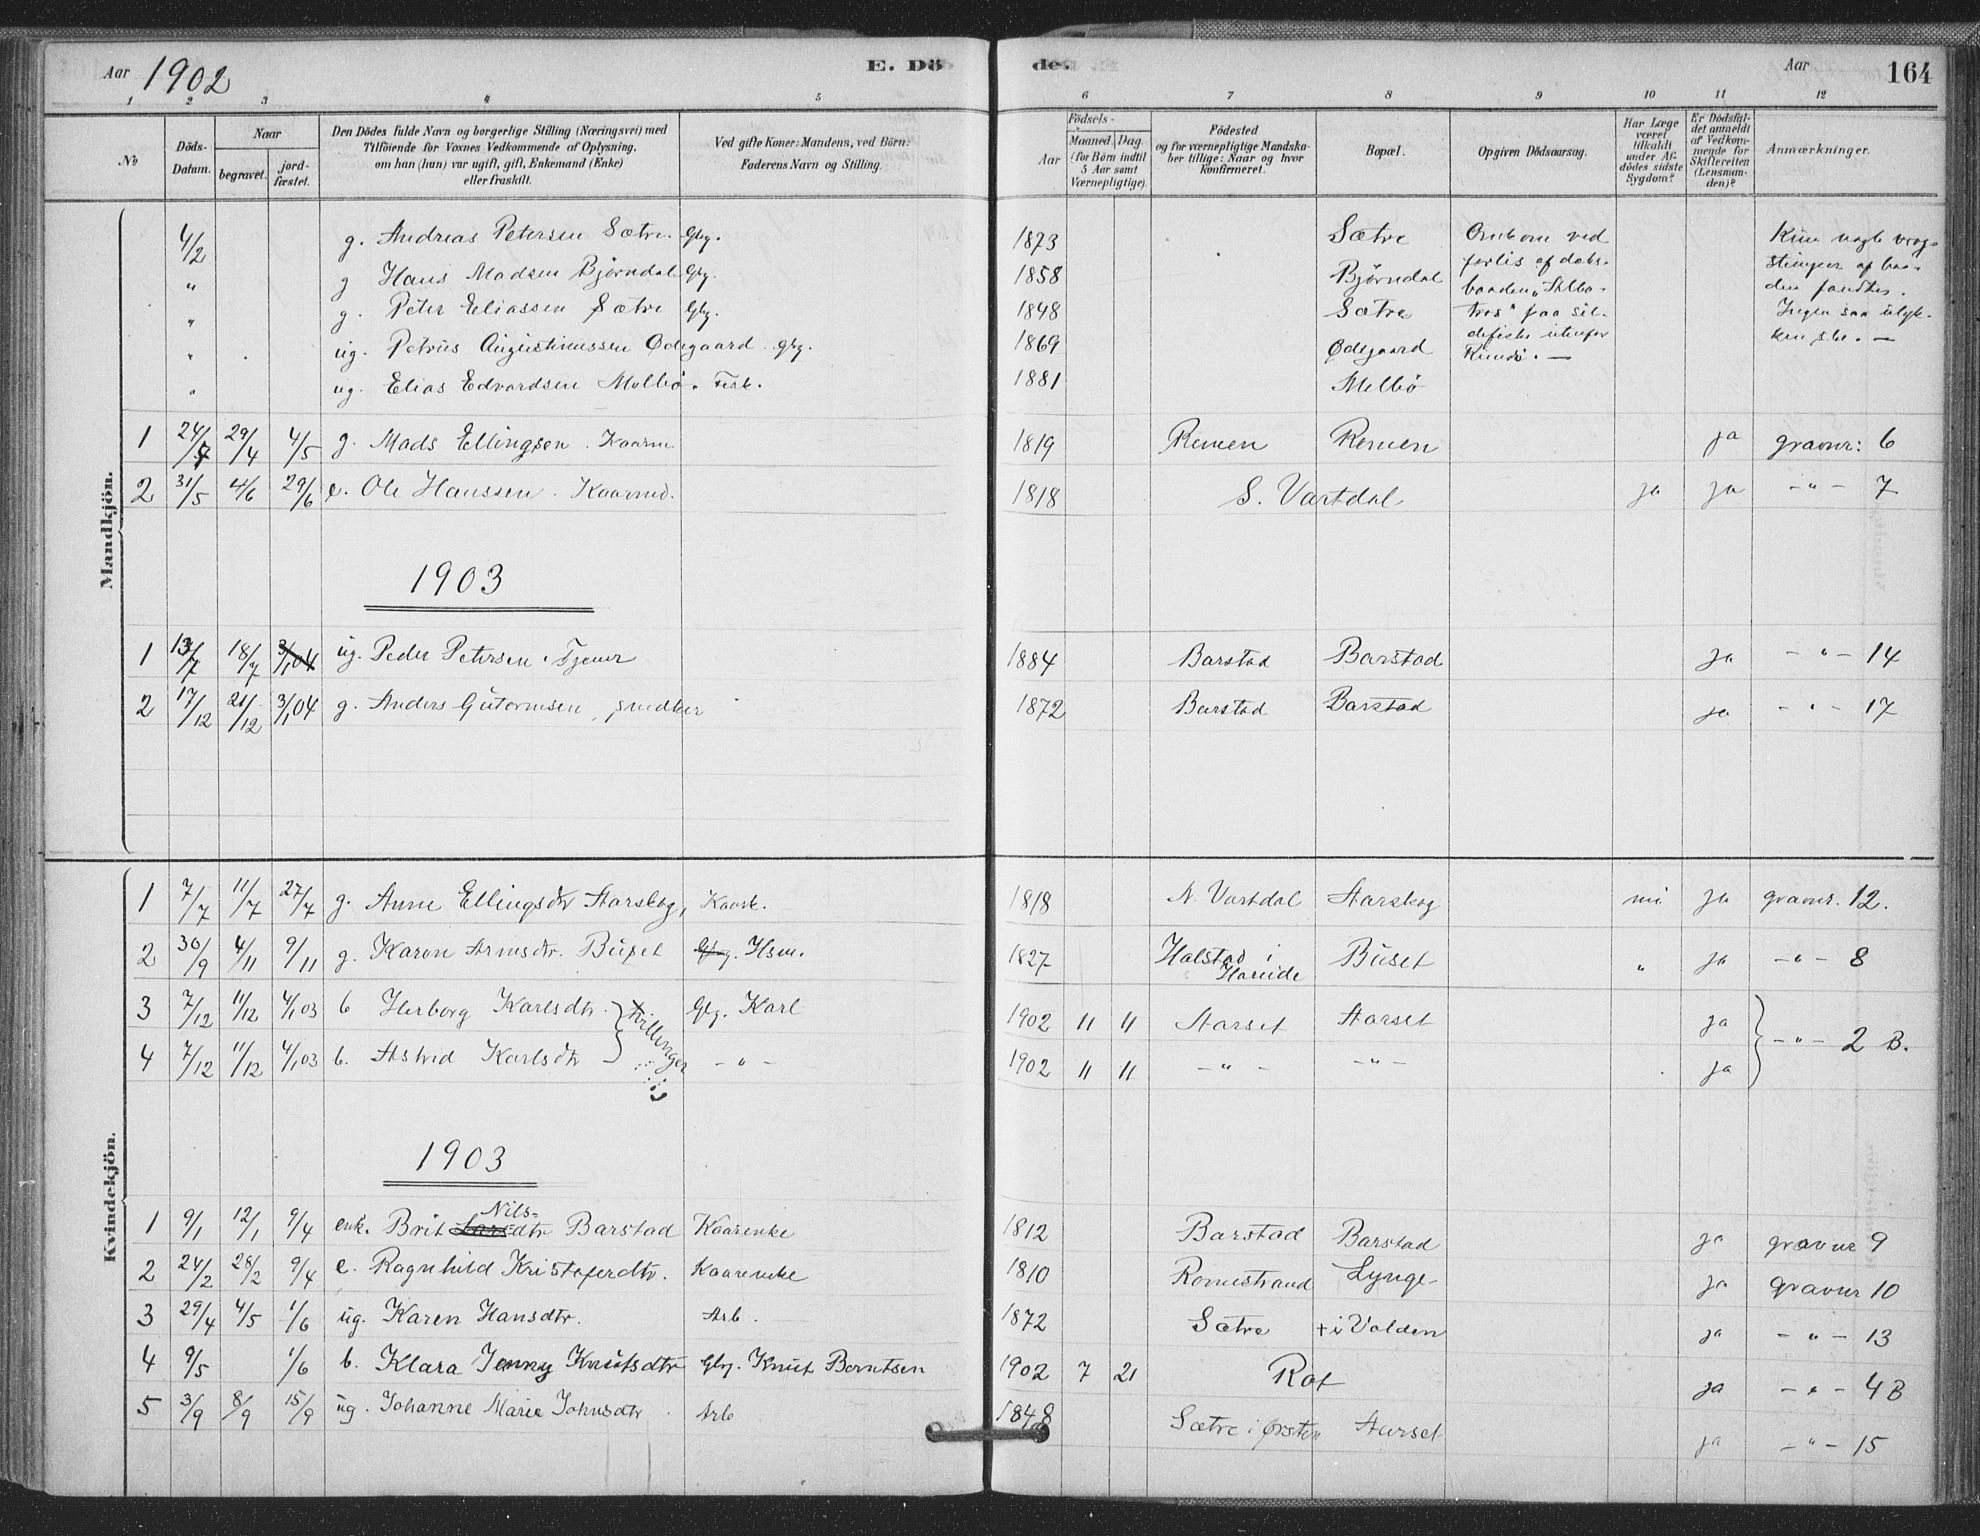 Aar 1902 E. Dö de. Aar 164
1 2 3 4 5 6 7 8 9 10 11 12
No
Döds-Datum.
Naar
begravet.
jord-fæstet.
Den Dödes fulde Navn og borgerlige Stilling (Næringsvei) med
Tilföiende for Voxnes Vedkommende af Oplysning,
om han (hun) var ugift, gift, Enkemand (Enke)
eller fraskilt.
Ved gifte Koner: Mandens, ved Börn:
Faderens Navn og Stilling.
Födsels-
Aar
Maaned. Dag
(for Börn indtil
5 Aar samt
Værnepligtige).
Födested
og for værnepligtige Mandska-
ber tillige: Naar og hvor
konfirmeret.
Bopæl.
Opgiven Dödsaarsag.
Har Læge
været
tilkaldt
under Af-
dödes sidste
Sygdom?
Er Dödsfal-
det anmeldt
af Vedkom-
mende for
Skifteretten
(Lensman-
den)?
Anmærkninger.
Mandkjön.
4/2 g. Andreas Petersen Sætre. Gbg. 1873 Sætre Omkom ved Kun nogle vrag-
" g Hans Madsen Bjørndal Gbg. 1858 Bjørndal forlis af dæks- stumper af baa-
" g. Peter Eliassen Sætre Gbg. 1848 Sætre baaden "Alba- den fandtes.
" ug. Petrus Augustinussen Ødegaard. gbg. 1869 Ødegaard tros" paa sil- Ingen saa ulyk-
" ug. Elias Edvardsen Melbø. Fisk. 1881 Melbø defiske utenfor ken ske. —
Rundø. —
1 24/4 29/4 4/5 g. Mads Ellingsen. Kaarm 1819 Remen Remen ja gravnr: 6
2 31/5 4/6 29/6 e. Ole Hanssen. Kaarmd. 1818 S. Vartdal ja ja -"- 7
1903
1 13/7 18/7 3/1 04 ug. Peder Petersen. Tjener 1884 Barstad Barstad ja -"- 14
2 17/12 21/12 3/1 04 g. Anders Gutormsen, snedker 1872 Barstad Barstad ja -"- 17
Kvindekjön.
1 7/7 11/7 27/7 g. Anne Ellingsdtr Aarskog, Kaark. 1818 N. Vartdal Aarskog ja gravnr. 12.
2 30/9 4/11 9/11 g. Karen Arnsdtr. Buset Gbg. Hsm. 1827 Halstad i Hareide Buset " ja -"- 8
3 7/12 11/12 4/1 03 b Herborg Karlsdtr. Gbg. Karl 1902 11 11 Aarset Aarset ja
Tvillinger
-"- 2 B.
4 7/12 11/12 4/1 03 b. Astrid Karlsdtr -"- 1902 11 11 -"- -"- ja
1903
Nils-
1 9/1 12/1 9/4 enk. Brit Larsdtr Barstad Kaarenke 1812 Barstad Barstad ja gravnr 9
2 24/2 28/2 9/4 e. Ragnhild Kristoferdtr. Kaarenke 1810 Romestrand Lynge ja gravnr 10
3 29/4 4/5 1/6 ug. Karen Hansdtr. Arb. 1872 Sætre + i Volden ja -"- 13
4 9/5 1/6 b. Klara Jenny Knutsdtr Gbg. Knut Berntsen 1902 7 21 Rot ja -"- 4 B
5 3/9 8/9 15/9 ug. Johanne Marie Johnsdtr Arb 1848 Sætre i Ørsten Aarset ja -"- 15